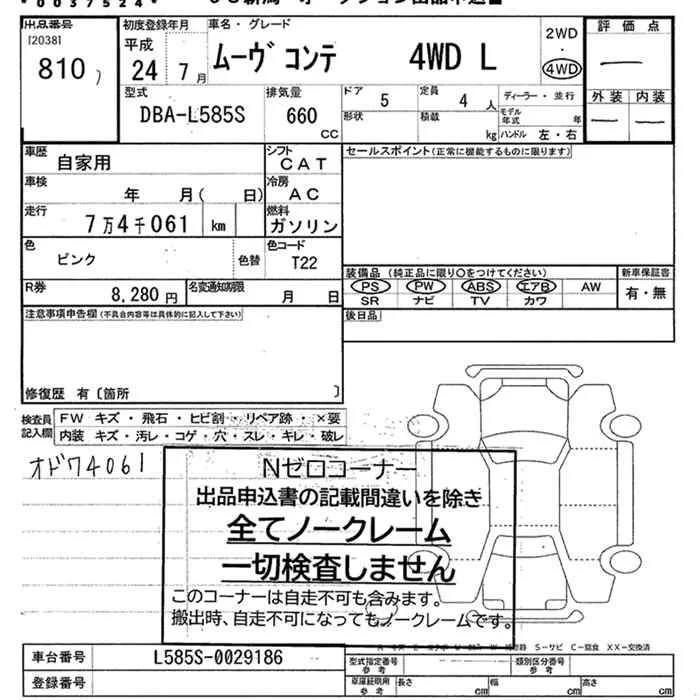 *0037524*
出品番号 [20381
810
初度登録年月
平成
24 7月
車名・グレード
ムーヴ コンテ 4WD L
2WD
・
4WD
評価点
外装 内装
型式
DBA-L585S
排気量
660
CC
ドア 5
定員 4人
形状
積載 kg
ディーラー・並行
モデル年式 年
ハンドル 左・右
車歴 自家用
シフト CAT
セールスポイント(正常に機能するものに限ります)
車検 年 月( 日)
冷房 AC
走行 7万4千061 km
燃料 ガソリン
色 ピンク 色替
色コード T22
装備品 (純正品に限り○をつけてください)
新車保証書
PS PW ABS エアB AW
有・無
SR ナビ TV カワ
R券 8,280円
名変通知期限 月 日
後日品
注意事項申告欄(不具合内容等は具体的に記入して下さい)
修復歴 有〔箇所 〕
検査員記入欄
FW キズ・飛石・ヒビ割・リペア跡・×要
内装 キズ・汚レ・コゲ・穴・スレ・キレ・破レ
オドワ4061
Nゼロコーナー
出品申込書の記載間違いを除き
全てノークレーム
一切検査しません
このコーナーは自走不可も含みます。
搬出時、自走不可になってもノークレームです。
S-サビ C-腐食 XX-交換済
車台番号 L585S-0029186
登録番号
型式指定番号 参考
類別区分番号 参考
車庫証明用 参考
長さ cm 幅 cm 高さ cm